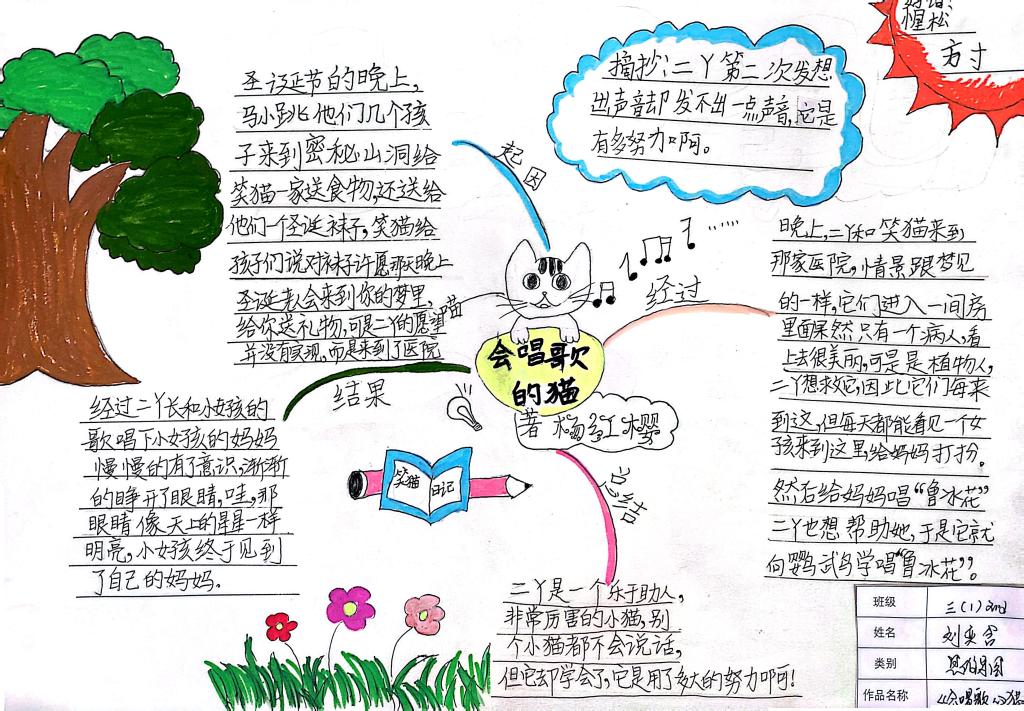 圣诞节的晚上,
马小跳他们几个孩
子来到密秘山洞给
笑猫一家送食物,还送给
他们一个圣诞袜子,笑猫给
孩子们说对袜子许愿那天晚上
圣诞老会来到你的梦里,
给你送礼物,可是二丫的愿望
并没有实现,而是来到了医院
起因
摘抄:二丫第二次发想
出声音却发不出一点声音,它是
有多努力啊。
惺松
方寸
喵
会唱歌
的猫
著杨红樱
经过
晚上,二丫和笑猫来到
那家医院,情景跟梦见
的一样,它们进入一间房
里面果然只有一个病人,看
上去很美丽,可是是植物人,
二丫想救她,因此它们每来
到这,但每天都能看见一个女
孩来到这里给妈妈打扮。
然后给妈妈唱“鲁冰花”
二丫也想帮助她,于是它就
向鹦鹉鸟学唱“鲁冰花”。
结果
经过二丫长和小女孩的
歌唱下小女孩的妈妈
慢慢的有了意识,渐渐
的睁开了眼睛,哇,那
眼睛像天上的星星一样
明亮,小女孩终于见到
了自己的妈妈.
笑猫
日记
总结
二丫是一个乐于助人,
非常厉害的小猫,别
个小猫都不会说话,
但它却学会了,它是用了多大的努力啊!
班级 三(1)
姓名
类别 思维导图
作品名称 《会唱歌的猫